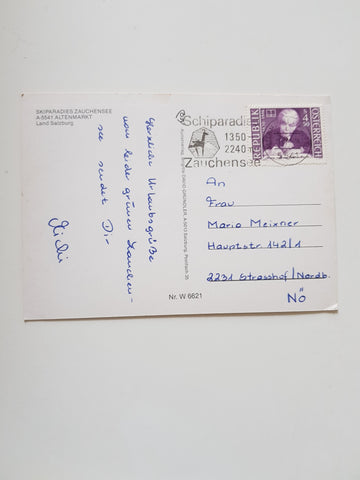 SKIPARADIES ZAUCHENSEE
A-5541 ALTENMARKT
Land Salzburg
Herzliche Urlaubsgrüße
vom leider grünen Zauchen-
see sendet Dir
Schiparadies
1350-
2240 m
Zauchensee
REPUBLIK ÖSTERREICH
An
Frau
Maria Meixner
Hauptstr. 142/1
2231 Strasshof/Nordb.
NÖ
Nr. W 6621